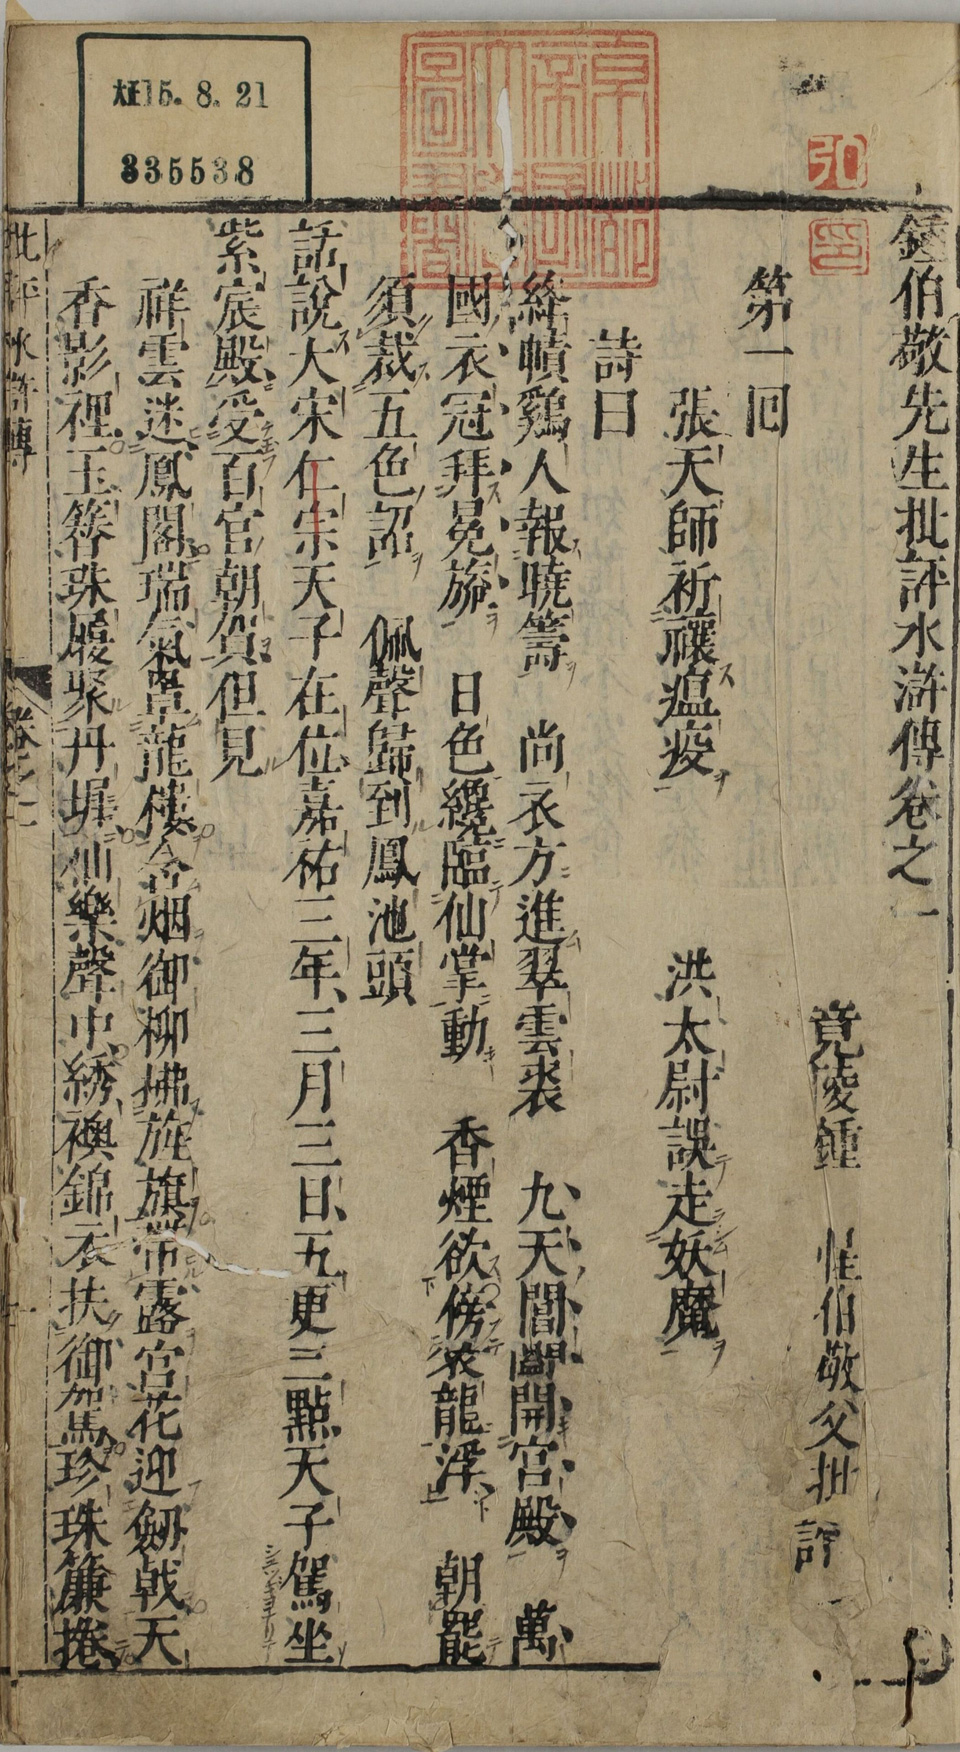 鍾伯敬先生批評水滸傳卷之一
竟陵鍾 惺伯敬父批評
第一回
張天師祈禳瘟疫 洪太尉誤走妖魔
詩曰
絳幘鷄人報曉籌 尚衣方進翠雲裘 九天閶闔開宮殿 萬
國衣冠拜冕旒 日色纔臨仙掌動 香煙欲傍衮龍浮 朝罷
須裁五色詔 佩聲歸到鳳池頭
話說大宋仁宗天子在位嘉祐三年三月三日五更三點天子駕坐
紫宸殿受百官朝賀但見
祥雲迷鳳閣瑞氣罩龍樓含烟御柳拂旌旗帶露宮花迎劔戟天
香影裡玉簪珠履聚丹墀仙樂聲中綉襖錦衣扶御駕珍珠簾捲
批評水滸傳 卷之一
大正15.8.21
335538